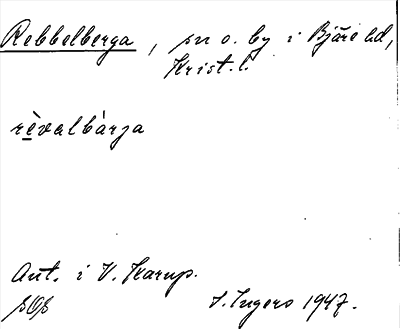 Rebbelberga, sn o. by i Bjäre hd,
Krist. l.
rèvalbàrja
Ant. i V. Karup.
S. Ingers 1947.